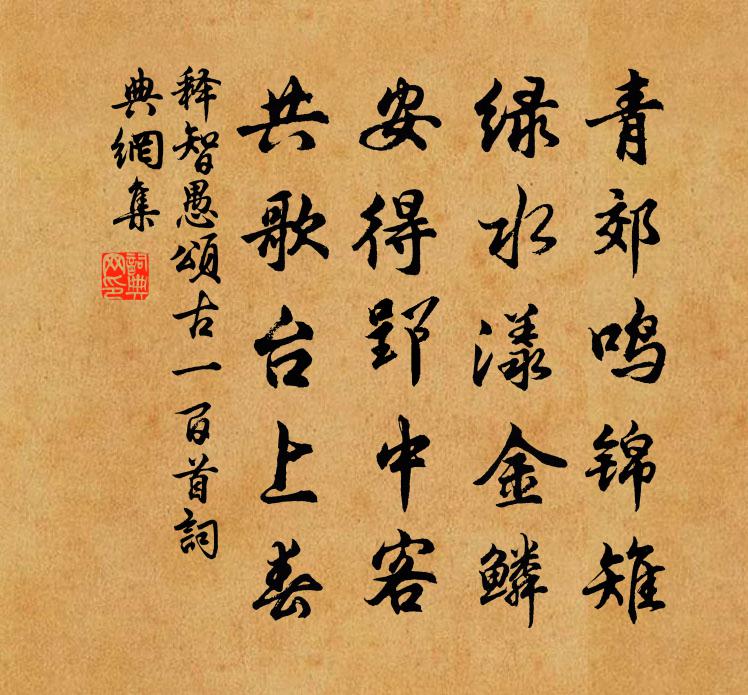 青郊鸣锦雉
绿水漾金鳞
安得郢中客
共歌台上春
释智愚颂古一百首詞
典網集
詞典
网印